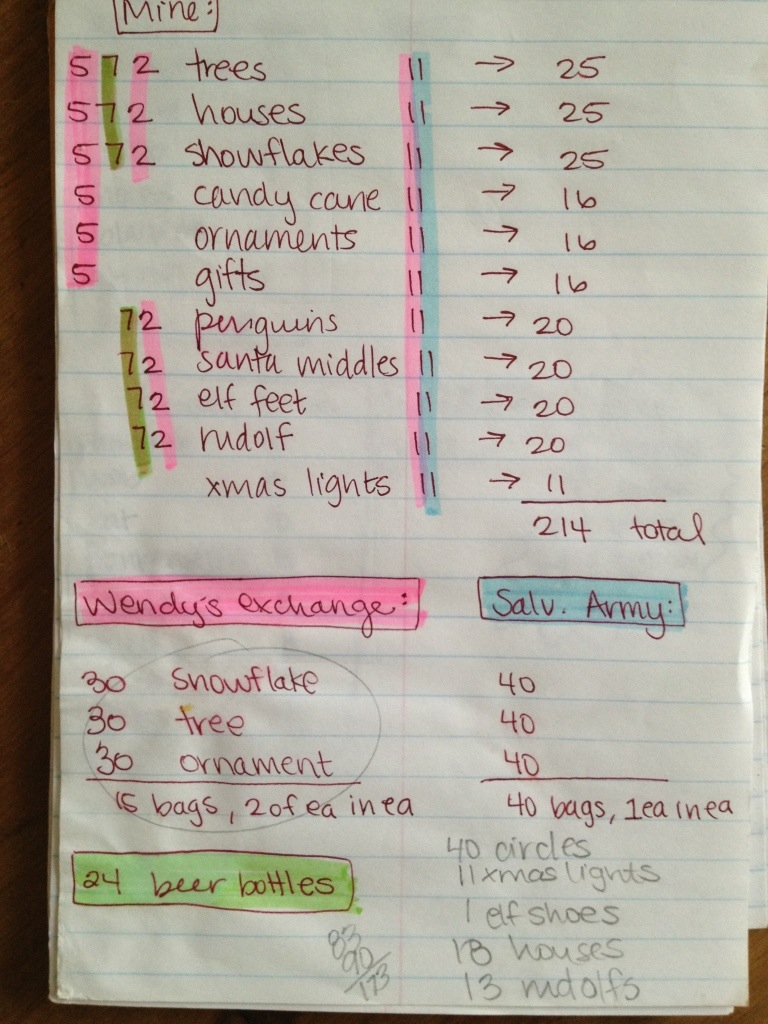 Mine:
5 7 2 trees 11 → 25
5 7 2 houses 11 → 25
5 7 2 snowflakes 11 → 25
5 candy cane 11 → 16
5 ornaments 11 → 16
5 gifts 11 → 16
7 2 penguins 11 → 20
7 2 santa middles 11 → 20
7 2 elf feet 11 → 20
7 2 rudolf 11 → 20
xmas lights 11 → 11
214 total
Wendy's exchange:
30 snowflake
30 tree
30 ornament
15 bags, 2 of ea in ea
Salv. Army:
40
40
40
40 bags, 1 ea in ea
24 beer bottles
40 circles
11 xmas lights
1 elf shoes
18 houses
13 rudolfs
83
90
173